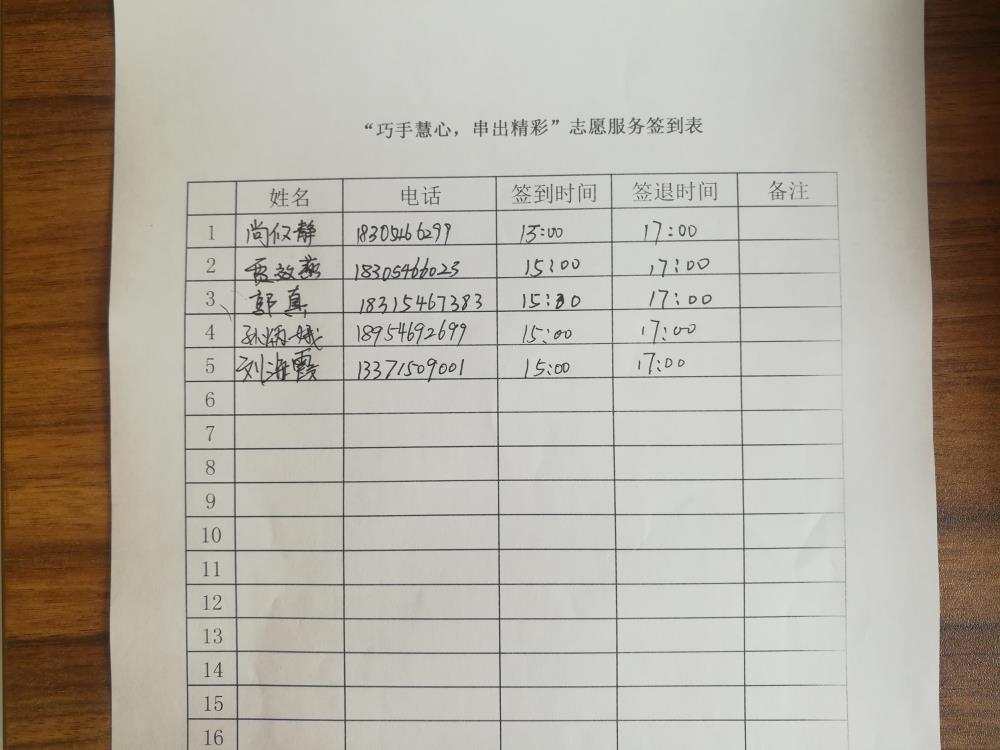 “巧手慧心，串出精彩”志愿服务签到表
姓名 电话 签到时间 签退时间 备注
1 尚仅静 18305466299 15:00 17:00
2 贾效燕 18305466023 15:00 17:00
3 郭真 18315467383 15:30 17:00
4 孙炳娥 18954692699 15:00 17:00
5 刘海霞 13371509001 15:00 17:00
6
7
8
9
10
11
12
13
14
15
16